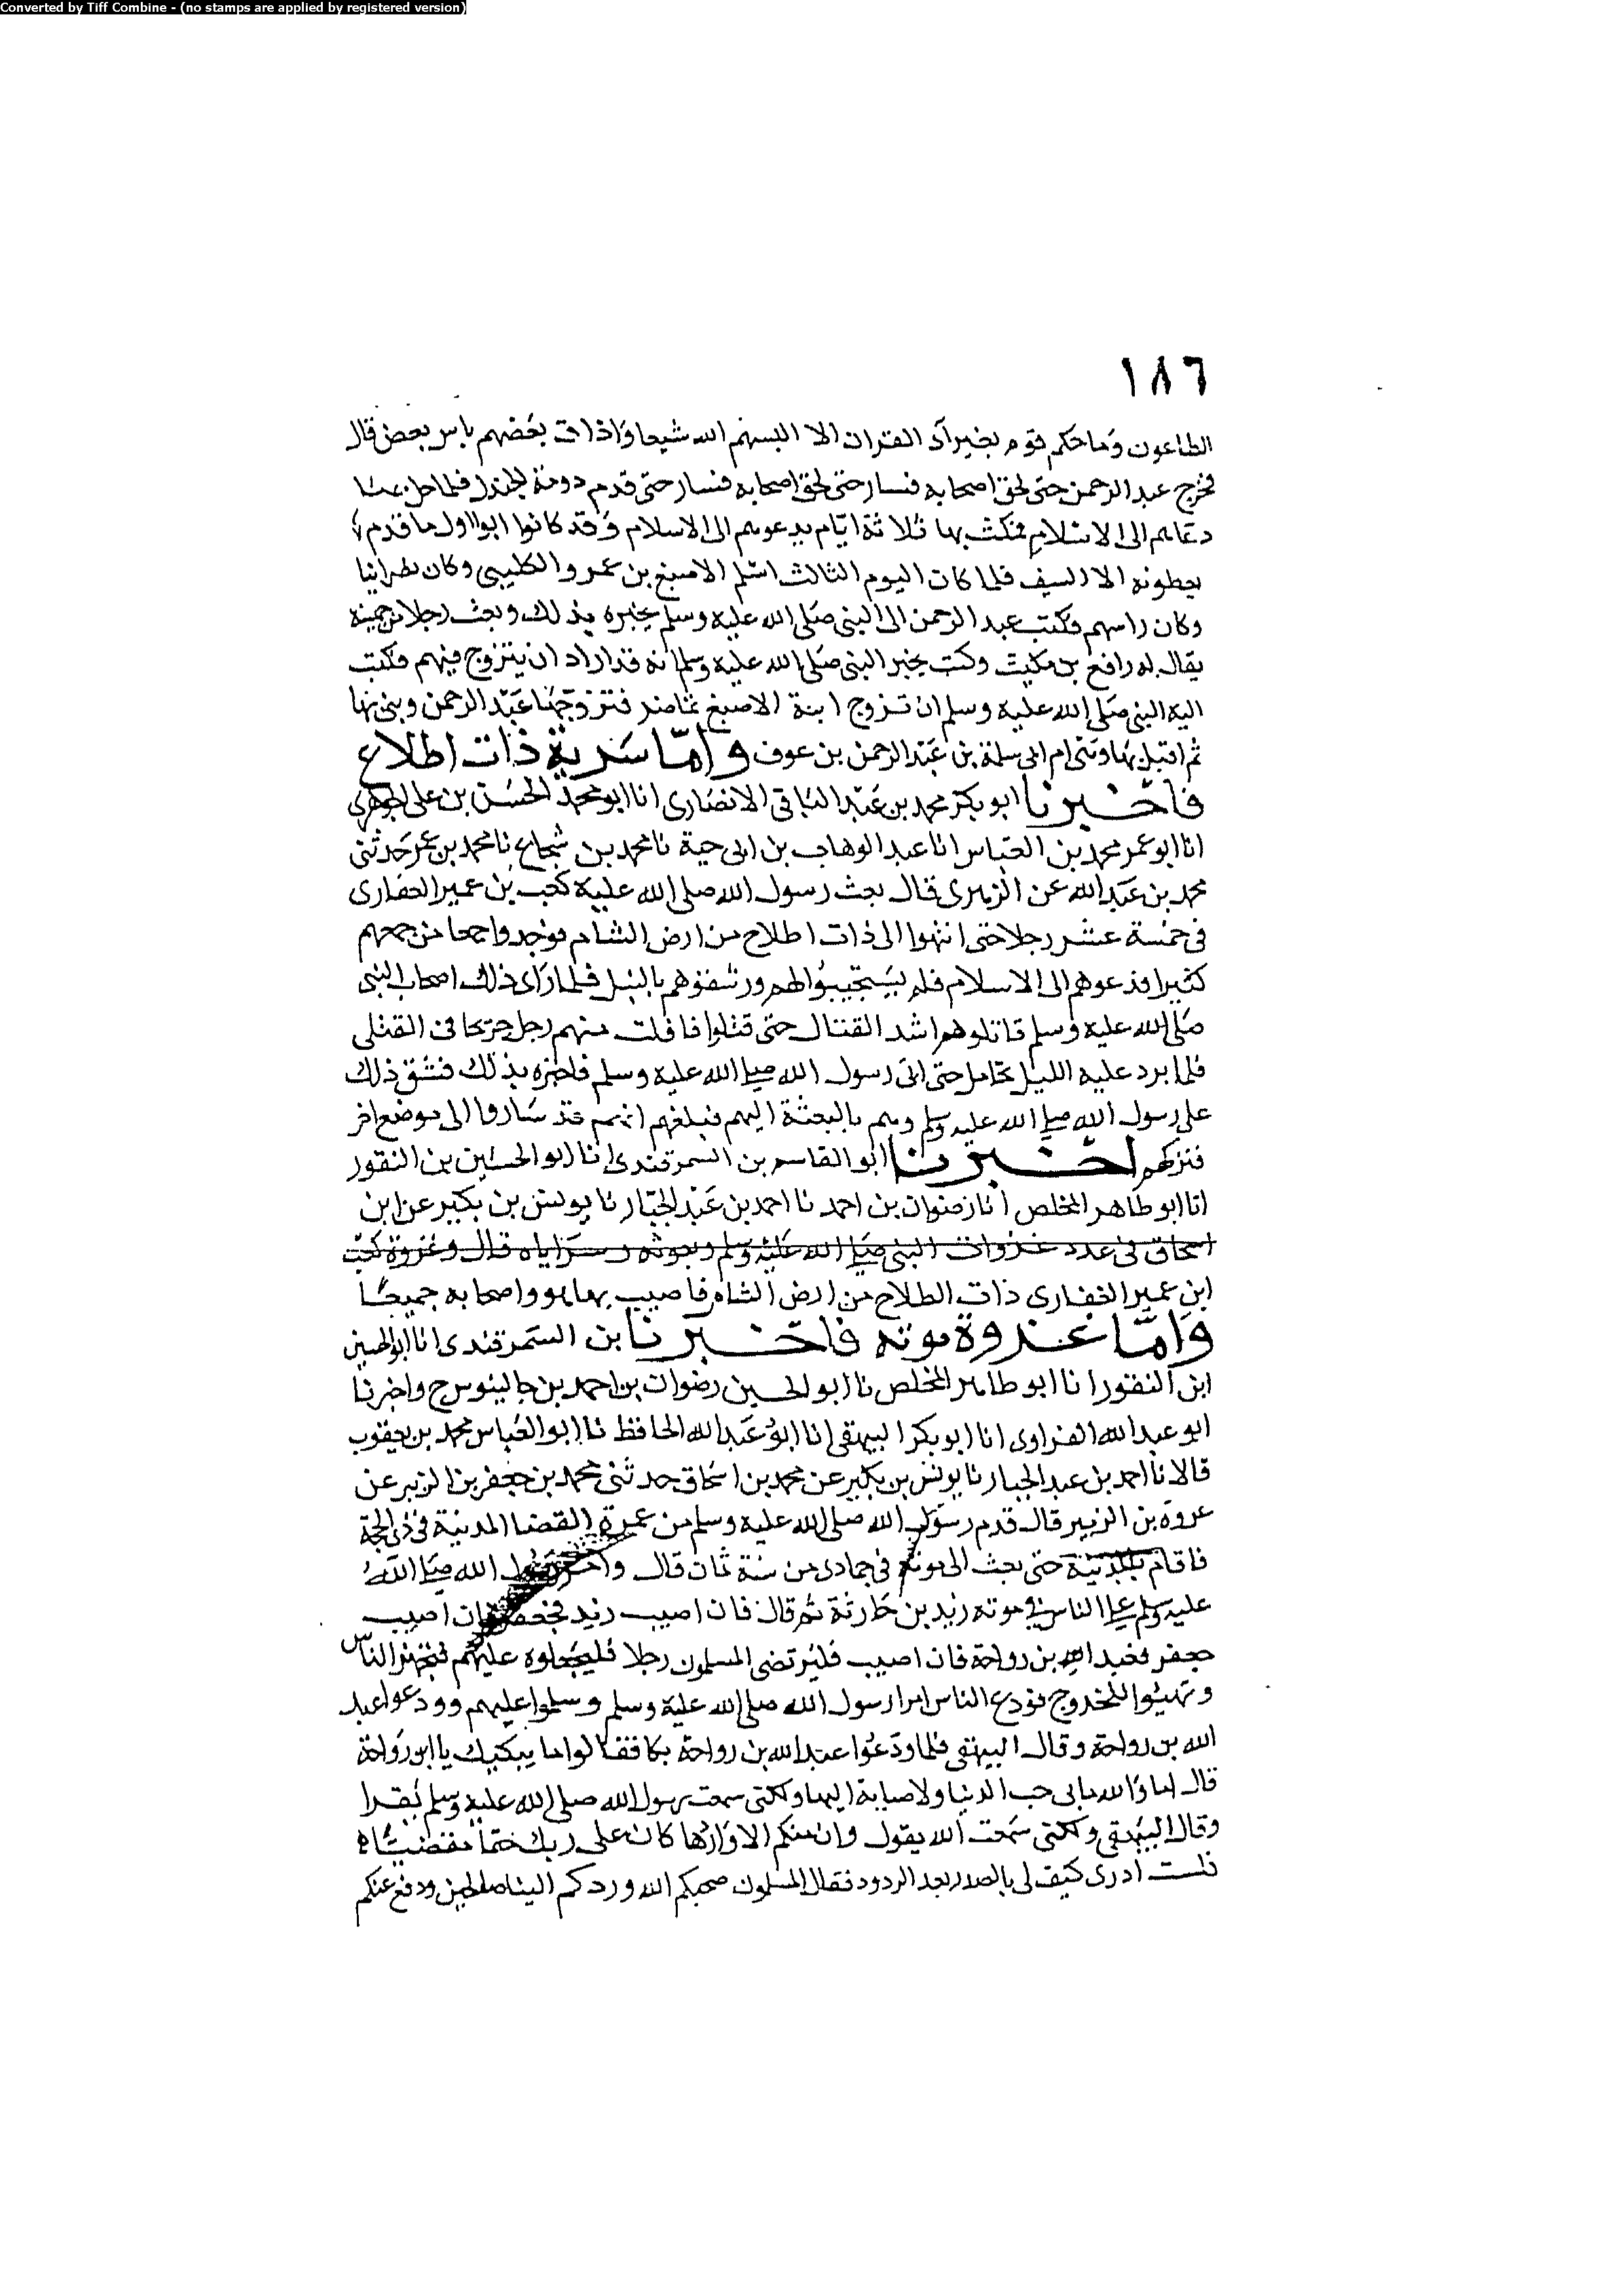 Converted by Tiff Combine - (no stamps are applied by registered version)
١٨٦
الطاعون وما حكم قوم بغير آي القران الا البسهم الله شيعا واذاق بعضهم باس بعض قال
فخرج عبد الرحمن حتى لحق اصحابه فسار حتى لحق اصحابه فسار حتى قدم دومة الجندل فلما حل بها
دعاهم الى الاسلام فمكث بها ثلاثة ايام يدعوهم الى الاسلام وقد كانوا ابوا اول ما قدم
يعطونه الا السيف فلما كان اليوم الثالث اسلم الاصبغ بن عمرو الكلبي وكان نصرانيا
وكان راسهم فكتب عبد الرحمن الى النبي صلى الله عليه وسلم يخبره بذلك وبعث رجلا من جهينة
يقال له رافع بن مكيث وكتب يخبر النبي صلى الله عليه وسلم انه قد اراد ان يتزوج فيهم فكتب
اليه النبي صلى الله عليه وسلم ان تزوج ابنة الاصبغ تماضر فتزوجها عبد الرحمن وبنى بها
ثم اقبل بها وهي ام ابي سلمة بن عبد الرحمن بن عوف واما سرية ذات اطلاع
فاخبرنا ابو بكر محمد بن عبد الباقي الانصاري انا ابو محمد الحسن بن علي الجوهري
انا ابو عمر محمد بن العباس انا عبد الوهاب بن ابي حية نا محمد بن شجاع نا محمد بن عمر حدثني
محمد بن عبد الله عن الزهري قال بعث رسول الله صلى الله عليه كعب بن عمير الغفاري
في خمسة عشر رجلا حتى انتهوا الى ذات اطلاح من ارض الشام فوجدوا جمعا من جمعهم
كثيرا فدعوهم الى الاسلام فلم يستجيبوا لهم ورشقوهم بالنبل فلما راى ذلك اصحاب النبي
صلى الله عليه وسلم قاتلوهم اشد القتال حتى قتلوا فافلت منهم رجل جريحا في القتلى
فلما برد عليه الليل تحامل حتى اتى رسول الله صلى الله عليه وسلم فاخبره بذلك فشق ذلك
على رسول الله صلى الله عليه وسلم وهم بالبعثة اليهم فبلغهم انهم قد ساروا الى موضع اخر
فتركهم اخبرنا ابو القاسم بن السمرقندي انا ابو الحسين بن النقور
انا ابو طاهر المخلص انا رضوان بن احمد نا احمد بن عبد الجبار نا يونس بن بكير عن ابن
اسحاق في عدد غزوات النبي صلى الله عليه وسلم وبعوثه وسراياه قال وغزوة كعب
ابن عمير الغفاري ذات الطلاح من ارض الشام فاصيب بها هو واصحابه جميعا
واما غزوة موته فاخبرنا بن السمرقندي انا ابو الحسين
ابن النقور انا ابو طاهر المخلص نا ابو الحسين رضوان بن احمد بن جالينوس ح واخبرنا
ابو عبد الله الفراوي انا ابو بكر البيهقي انا ابو عبد الله الحافظ نا ابو العباس محمد بن يعقوب
قالا نا احمد بن عبد الجبار نا يونس بن بكير عن محمد بن اسحاق حدثني محمد بن جعفر بن الزبير عن
عروة بن الزبير قال قدم رسول الله صلى الله عليه وسلم من عمرة القضا المدينة في ذي الحجة
فاقام بالمدينة حتى بعث الى موتة في جمادى من سنة ثمان قال وامر رسول الله صلى الله
عليه وسلم على الناس في موته زيد بن حارثة ثم قال فان اصيب زيد فجعفر فان اصيب
جعفر فعبد الله بن رواحة فان اصيب فليرتضي المسلمون رجلا فليجعلوه عليهم فتجهز الناس
وتهيئوا للخروج فودع الناس امرا رسول الله صلى الله عليه وسلم وسلموا عليهم وودعوا عبد
الله بن رواحة وقال البيهقي فلما ودعوا عبد الله بن رواحة بكا فقالوا ما يبكيك يا ابن رواحة
قال اما والله ما بي حب الدنيا ولا صبابة اليها ولكني سمعت رسول الله صلى الله عليه وسلم يقرا
وقال البيهقي ولكني سمعت الله يقول وان منكم الا واردها كان على ربك حتما مقضيا
فلست ادري كيف لي بالصدر بعد الردود فقال المسلمون صحبكم الله وردكم الينا صالحين ودفع عنكم